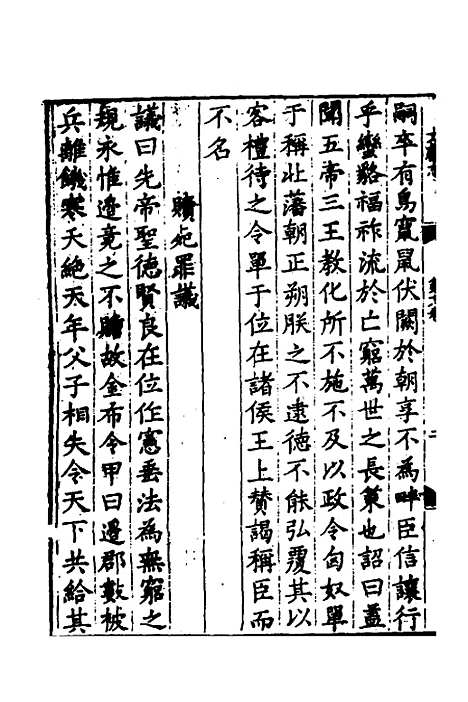 嗣卒有鳥竄鼠伏闕於朝享不為畔臣信讓行
乎蠻貉福祚流於亡窮萬世之長策也詔曰盖
聞五帝三王教化所不施不及以政今匈奴單
于稱北藩朝正朔朕之不逮德不能弘覆其以
客禮待之令單于位在諸侯王上賛謁稱臣而
不名
贖死罪議
議曰先帝聖德賢良在位作憲垂法為無窮之
規永惟邊竟之不贍故金布令甲曰邊郡數被
兵離饑寒夭絶天年父子相失令天下共給其